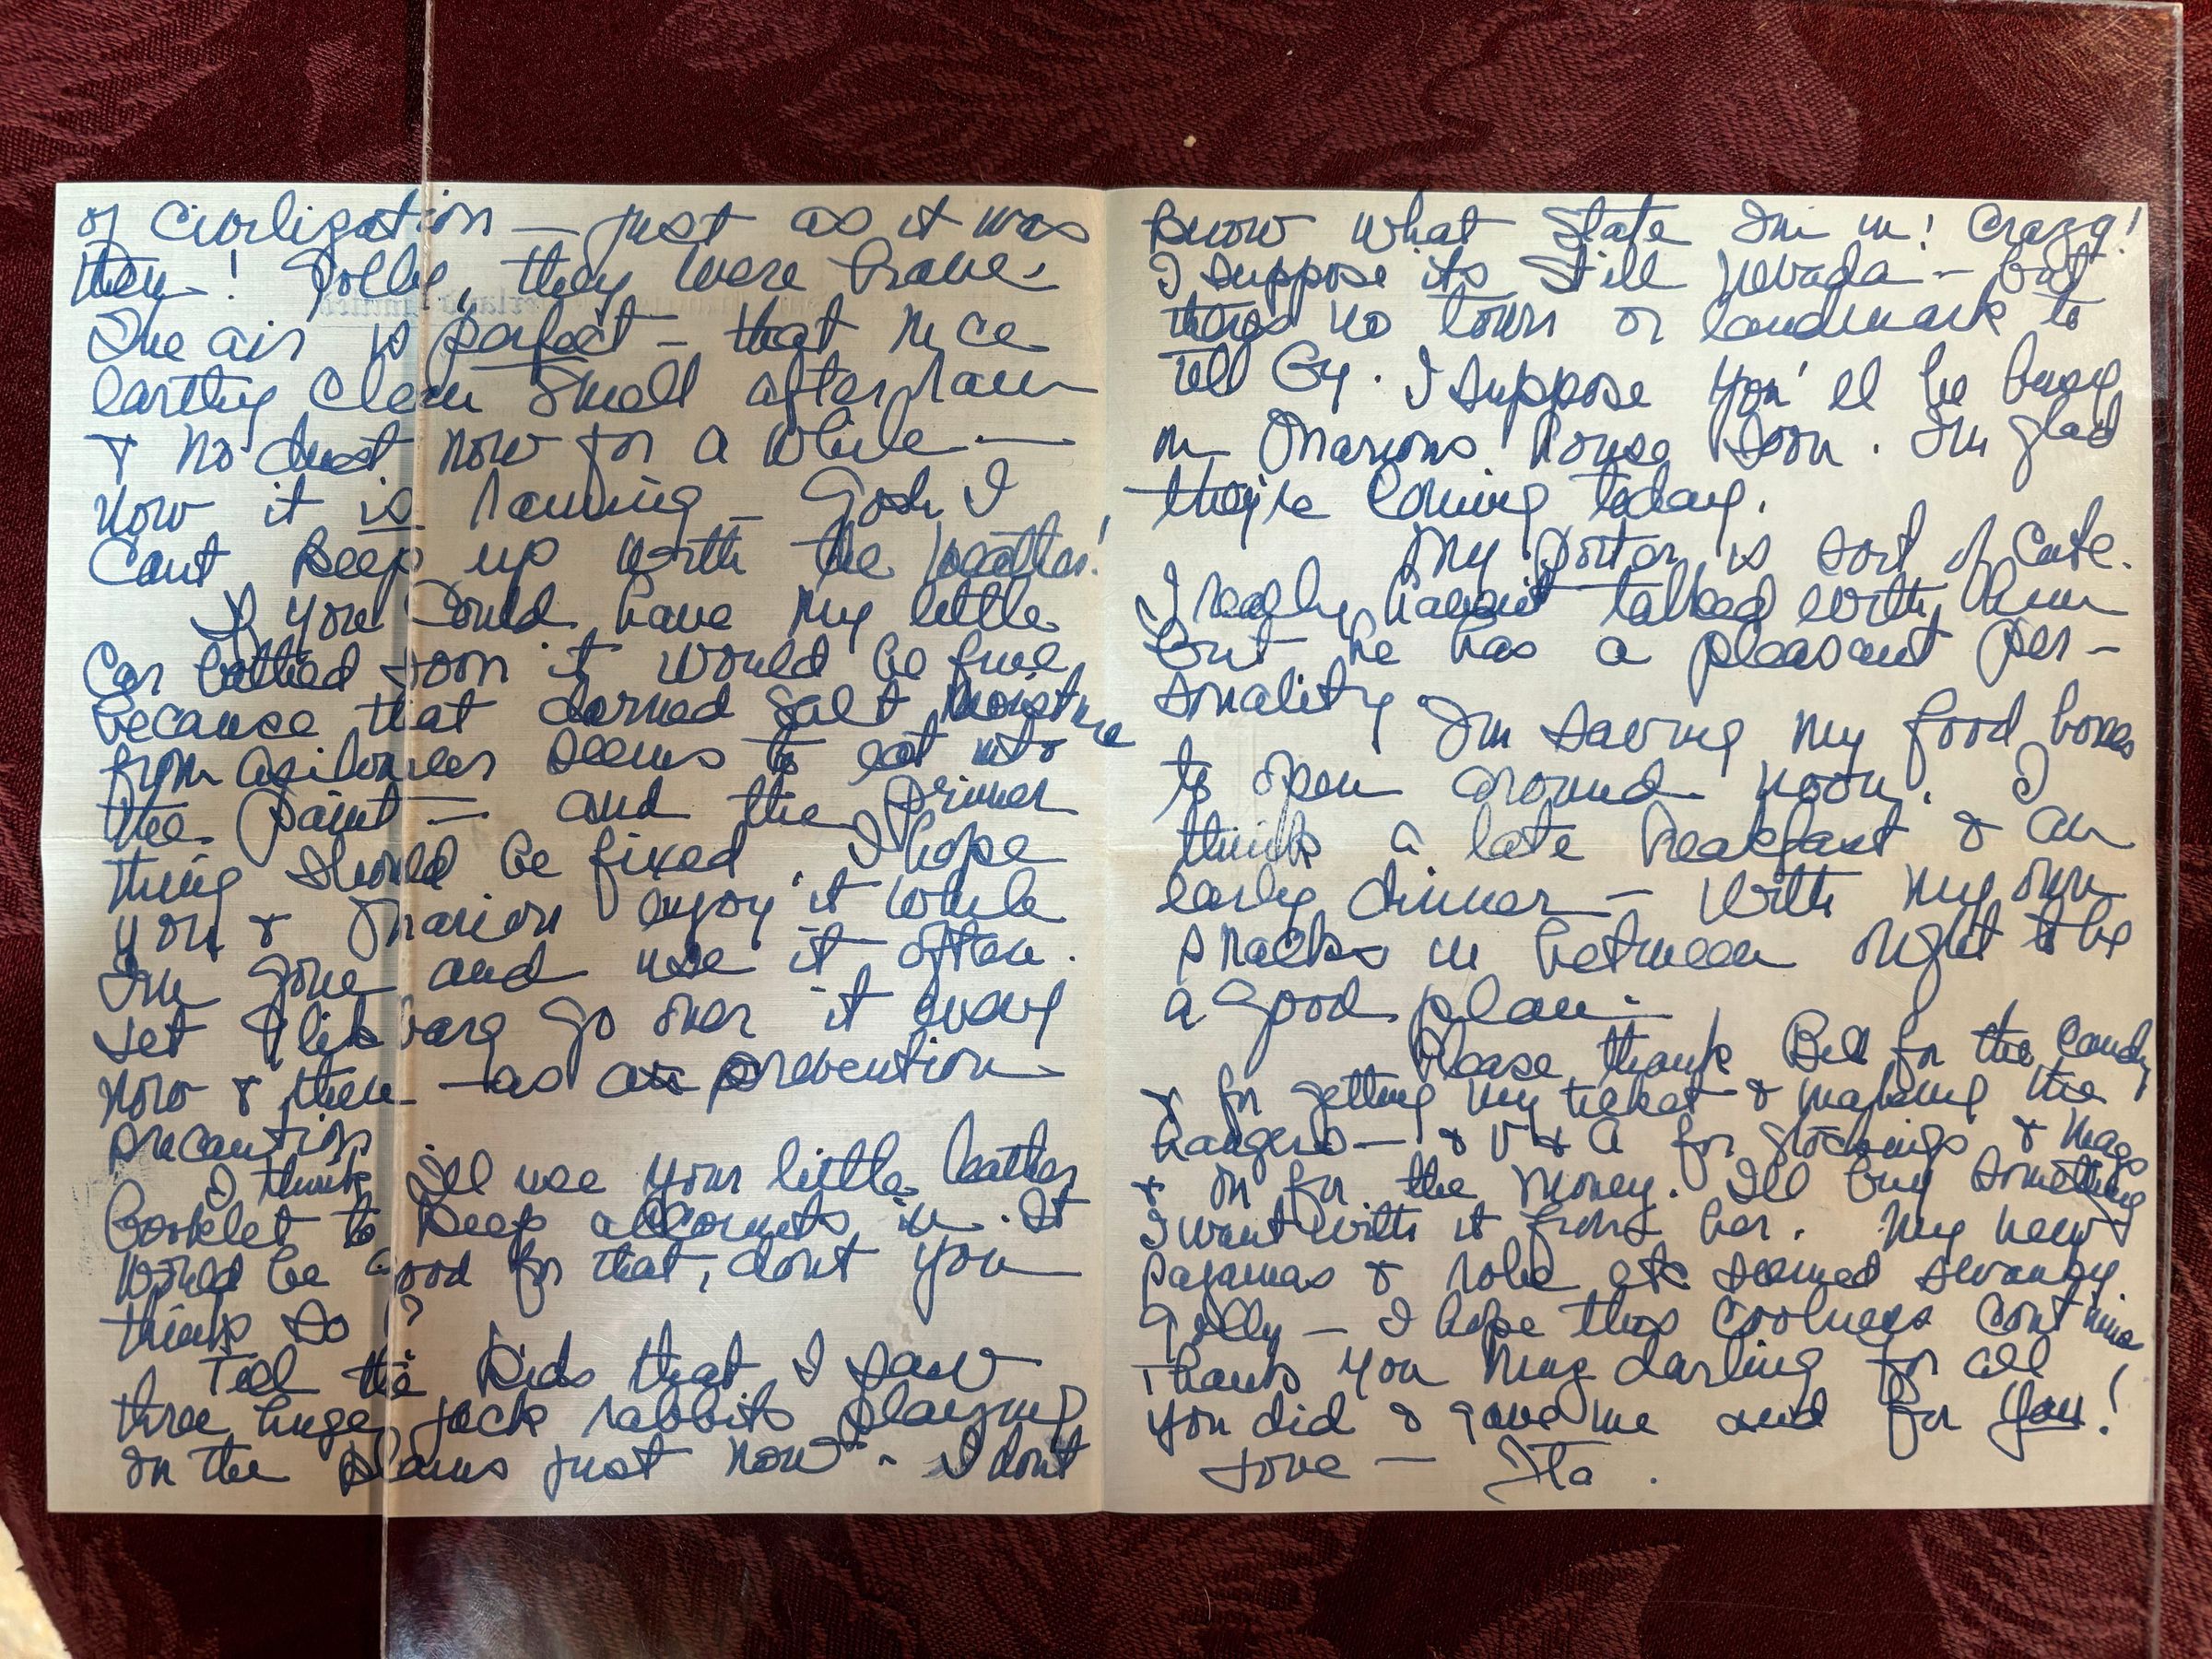 of civilization — just as it was
then! Golly, they were brave.
The air is perfect — that nice
earthy clean smell after rain
& no dust now for a while —
Now it is raining — Gosh, I
cant keep up with the weather!
If you could have my little
car bathed soon it would be fine
because that darned salt moisture
from seems to eat into
the paint — and the primer
thing should be fixed. I hope
you & Marion enjoy it while
Im gone and use it often.
Let go over it every
now & then — as a prevention
precaution
I think I'll use your little leather
booklet to keep accounts in. It
would be good for that, dont you
think so?
Tell the kids that I saw
three huge jack rabbits playing
on the plains just now. I dont
know what State Im in! Crazy!
I suppose its still Nevada — but
theres no town or landmark to
tell by. I suppose you'll be busy
in Marions house soon. Im glad
they're coming today.
My porter is sort of cute.
I really haven't talked with him
but he has a pleasant per-
sonality. Im saving my food boxes
to open around noon. I
think a late breakfast & an
early dinner — with my own
snacks in between ought to be
a good plan.
Please thank Bill for the candy
& for getting my ticket & making the
hangers — & V & A for stockings & mags
& for the money. I'll buy something
I want with it from her. My new
pajamas & robe etc seemed swanky.
Golly — I hope this coolness continues
Thank you May darling for all
you did & gave me and for you!
Love — Ita.